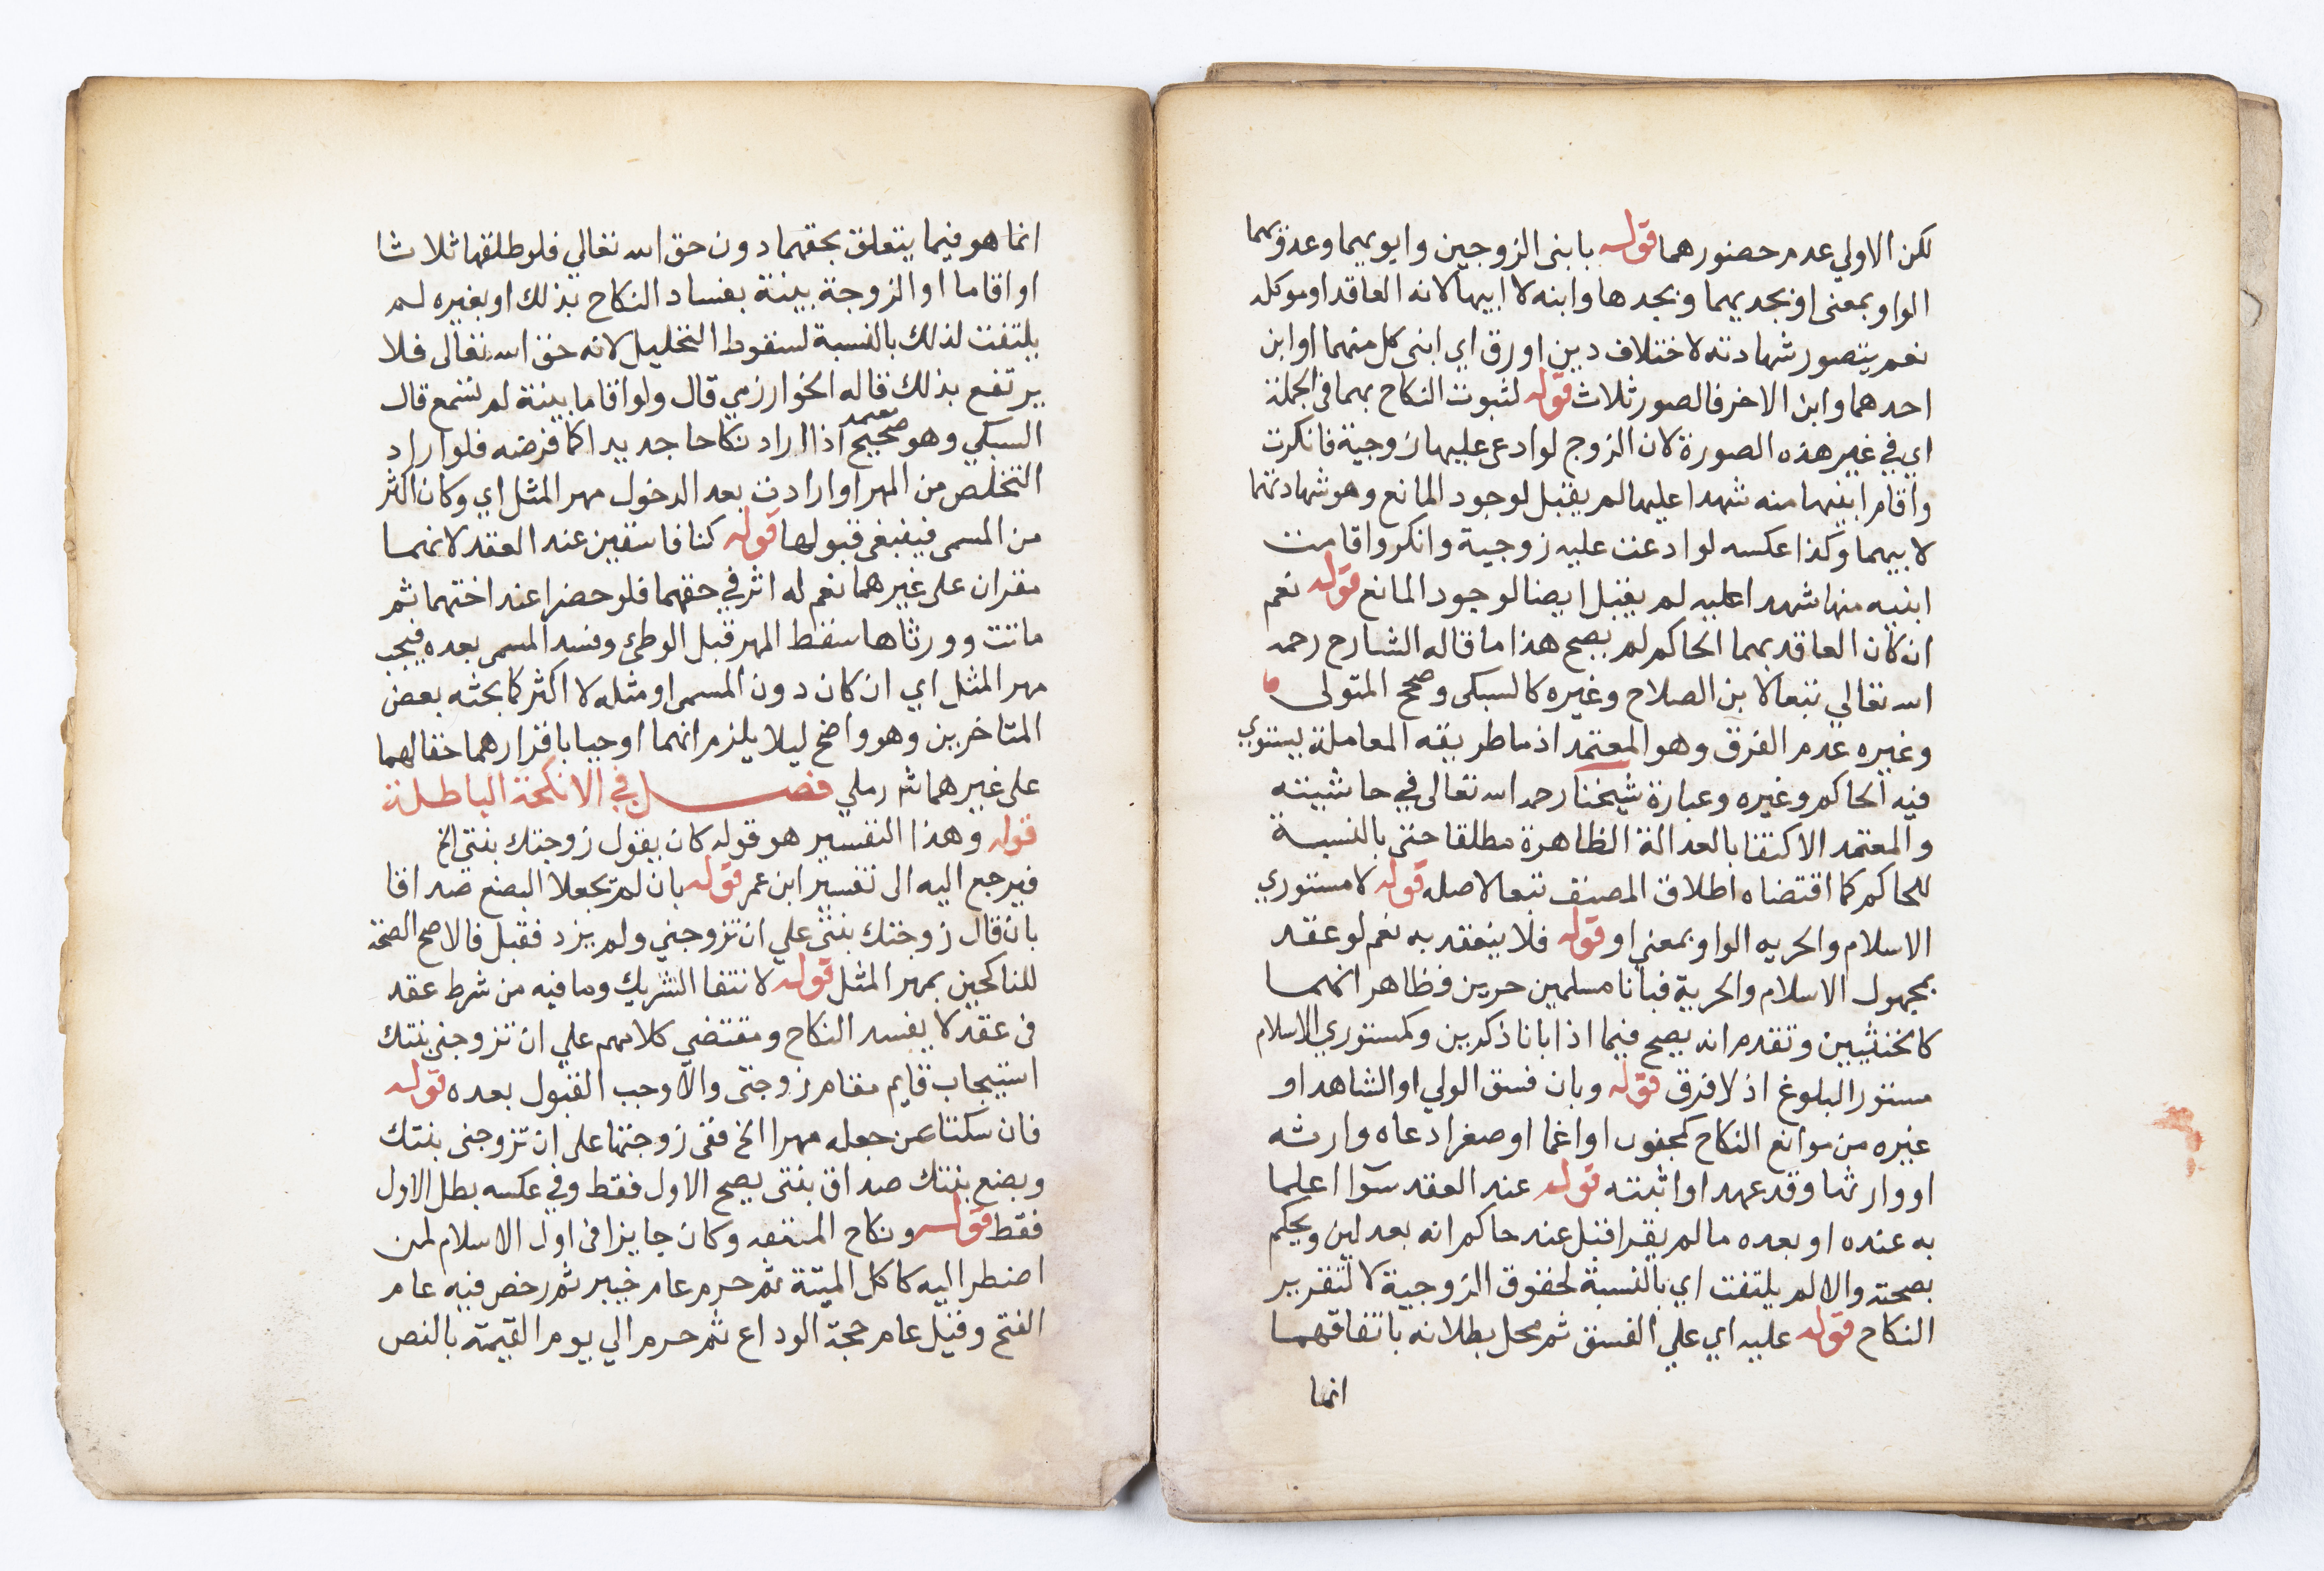 لكن الاولي عدم حضورهما قوله بابنى الزوجين وابويهما وعدوّيهما
الواو بمعنى او بجديهما وبجدها وابنه لا ابيها لانه العاقد او موكله
نعم يتصور شهادته لاختلاف دين او رق اي ابنى كل منهما او ابن
احدهما وابن الاخر فالصور ثلاث قوله لثبوت النكاح بهما في الجملة
اي في غير هذه الصورة لان الزوج لو ادعى عليها زوجية فانكرت
واقام ابنيها منه شهدا عليها لم يقبل لوجود المانع وهو شهادتهما
لابيهما وكذا عكسه لو ادعت عليه زوجية وانكر واقامت
ابنيه منها شهدا عليه لم يقبل ايضا لوجود المانع قوله نعم
ان كان العاقد بهما الحاكم لم يصح هذا ما قاله الشارح رحمه
الله تعالي تبعا لابن الصلاح وغيره كالسبكى وصحح المتولى
وغيره عدم الفرق وهو المعتمد اذ ما طريقه المعاملة يستوي
فيه الحاكم وغيره وعبارة شيخنا رحمه الله تعالى في حاشيته
والمعتمد الاكتفا بالعدالة الظاهرة مطلقا حتى بالنسبة
للحاكم كما اقتضاه اطلاق المصنف تبعا لاصله قوله لا مستوري
الاسلام والحريه الواو بمعني او قوله فلا ينعقد به نعم لو عقد
بمجهول الاسلام والحرية فبانا مسلمين حرين فظاهر انهما
كالخنثيين وتقدم انه يصح فيما اذا بانا ذكرين وكمستوري الاسلام
مستور البلوغ اذ لا فرق قوله وبان فسق الولي او الشاهد او
غيره من موانع النكاح كجنون او اغما او صغر ادعاه وارثه
او وارثها وقد عهد او اثبته قوله عند العقد سوآ اعلما
به عنده او بعده ما لم يقرا قبل عند حاكم انه بعدلين ويحكم
بصحته والا لم يلتفت اي بالنسبة لحقوق الزوجية لا لتقرير
النكاح قوله عليه اي علي الفسق ثم محل بطلانه باتفاقهما
انما
انما هو فيما يتعلق بحقهما دون حق الله تعالي فلو طلقها ثلاثا
او اقاما او الزوجة بينة بفساد النكاح بذلك او بغيره لم
يلتفت لذلك بالنسبة لسقوط التحليل لانه حق الله تعالى فلا
يرتفع بذلك قاله الخوارزمي قال ولو اقاما بينة لم تسمع قال
السبكي وهو صحيح معتمد اذا اراد نكاحا جديدا كما فرضه فلو اراد
التخلص من المهر او ارادت بعد الدخول مهر المثل اي وكان اكثر
من المسمى فينبغى قبولها قوله كنا فاسقين عند العقد لانهما
مقران على غيرهما نعم له اثر في حقهما فلو حضرا عقد اختهما ثم
ماتت وورثاها سقط المهر قبل الوطئ وفسد المسمى بعده فيجب
مهر المثل اي ان كان دون المسمى او مثله لا اكثر كما بحثه بعض
المتاخرين وهو واضح ليلا يلزم انهما اوجبا باقرارهما حقا لهما
على غيرهما شر رملي فصل في الانكحة الباطلة
قوله وهذا التفسير هو قوله كان يقول زوجتك بنتي الخ
فيرجع اليه الى تفسير ابن عمر قوله بان لم يجعلا البضع صداقا
بان قال زوجتك بنتى علي ان تزوجني ولم يزد فقبل فالاصح الصحة
للناكحين بمهر المثل قوله لانتفا التشريك وما فيه من شرط عقد
فى عقد لا يفسد النكاح ومقتضي كلامهم علي ان تزوجني بنتك
استيجاب قايم مقام زوجنى والا وجب القبول بعده قوله
فان سكتا عن جعله مهرا الخ ففى زوجتها على ان تزوجنى بنتك
وبضع بنتك صداق بنتى يصح الاول فقط وفي عكسه بطل الاول
فقط قوله ونكاح المتعة وكان جايزا فى اول الاسلام لمن
اضطر اليه كاكل الميتة ثم حرم عام خيبر ثم رخص فيه عام
الفتح وقيل عام حجة الوداع ثم حرم الي يوم القيمة بالنص